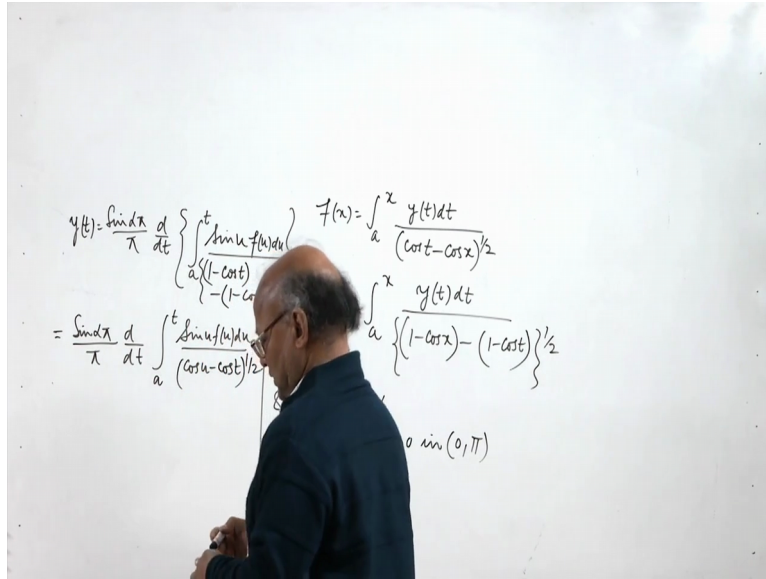 y(t) = Sin απ/π d/dt { ∫_a^t Sin u f(u) du / {(1-cos t)
-(1-co
= Sin απ/π d/dt ∫_a^t Sin u f(u) du / (cos u - cos t)^1/2
f(x) = ∫_a^x y(t) dt / (cos t - cos x)^1/2
∫_a^x y(t) dt / {(1-cos x) - (1-cos t)}^1/2
0 in (0, π)